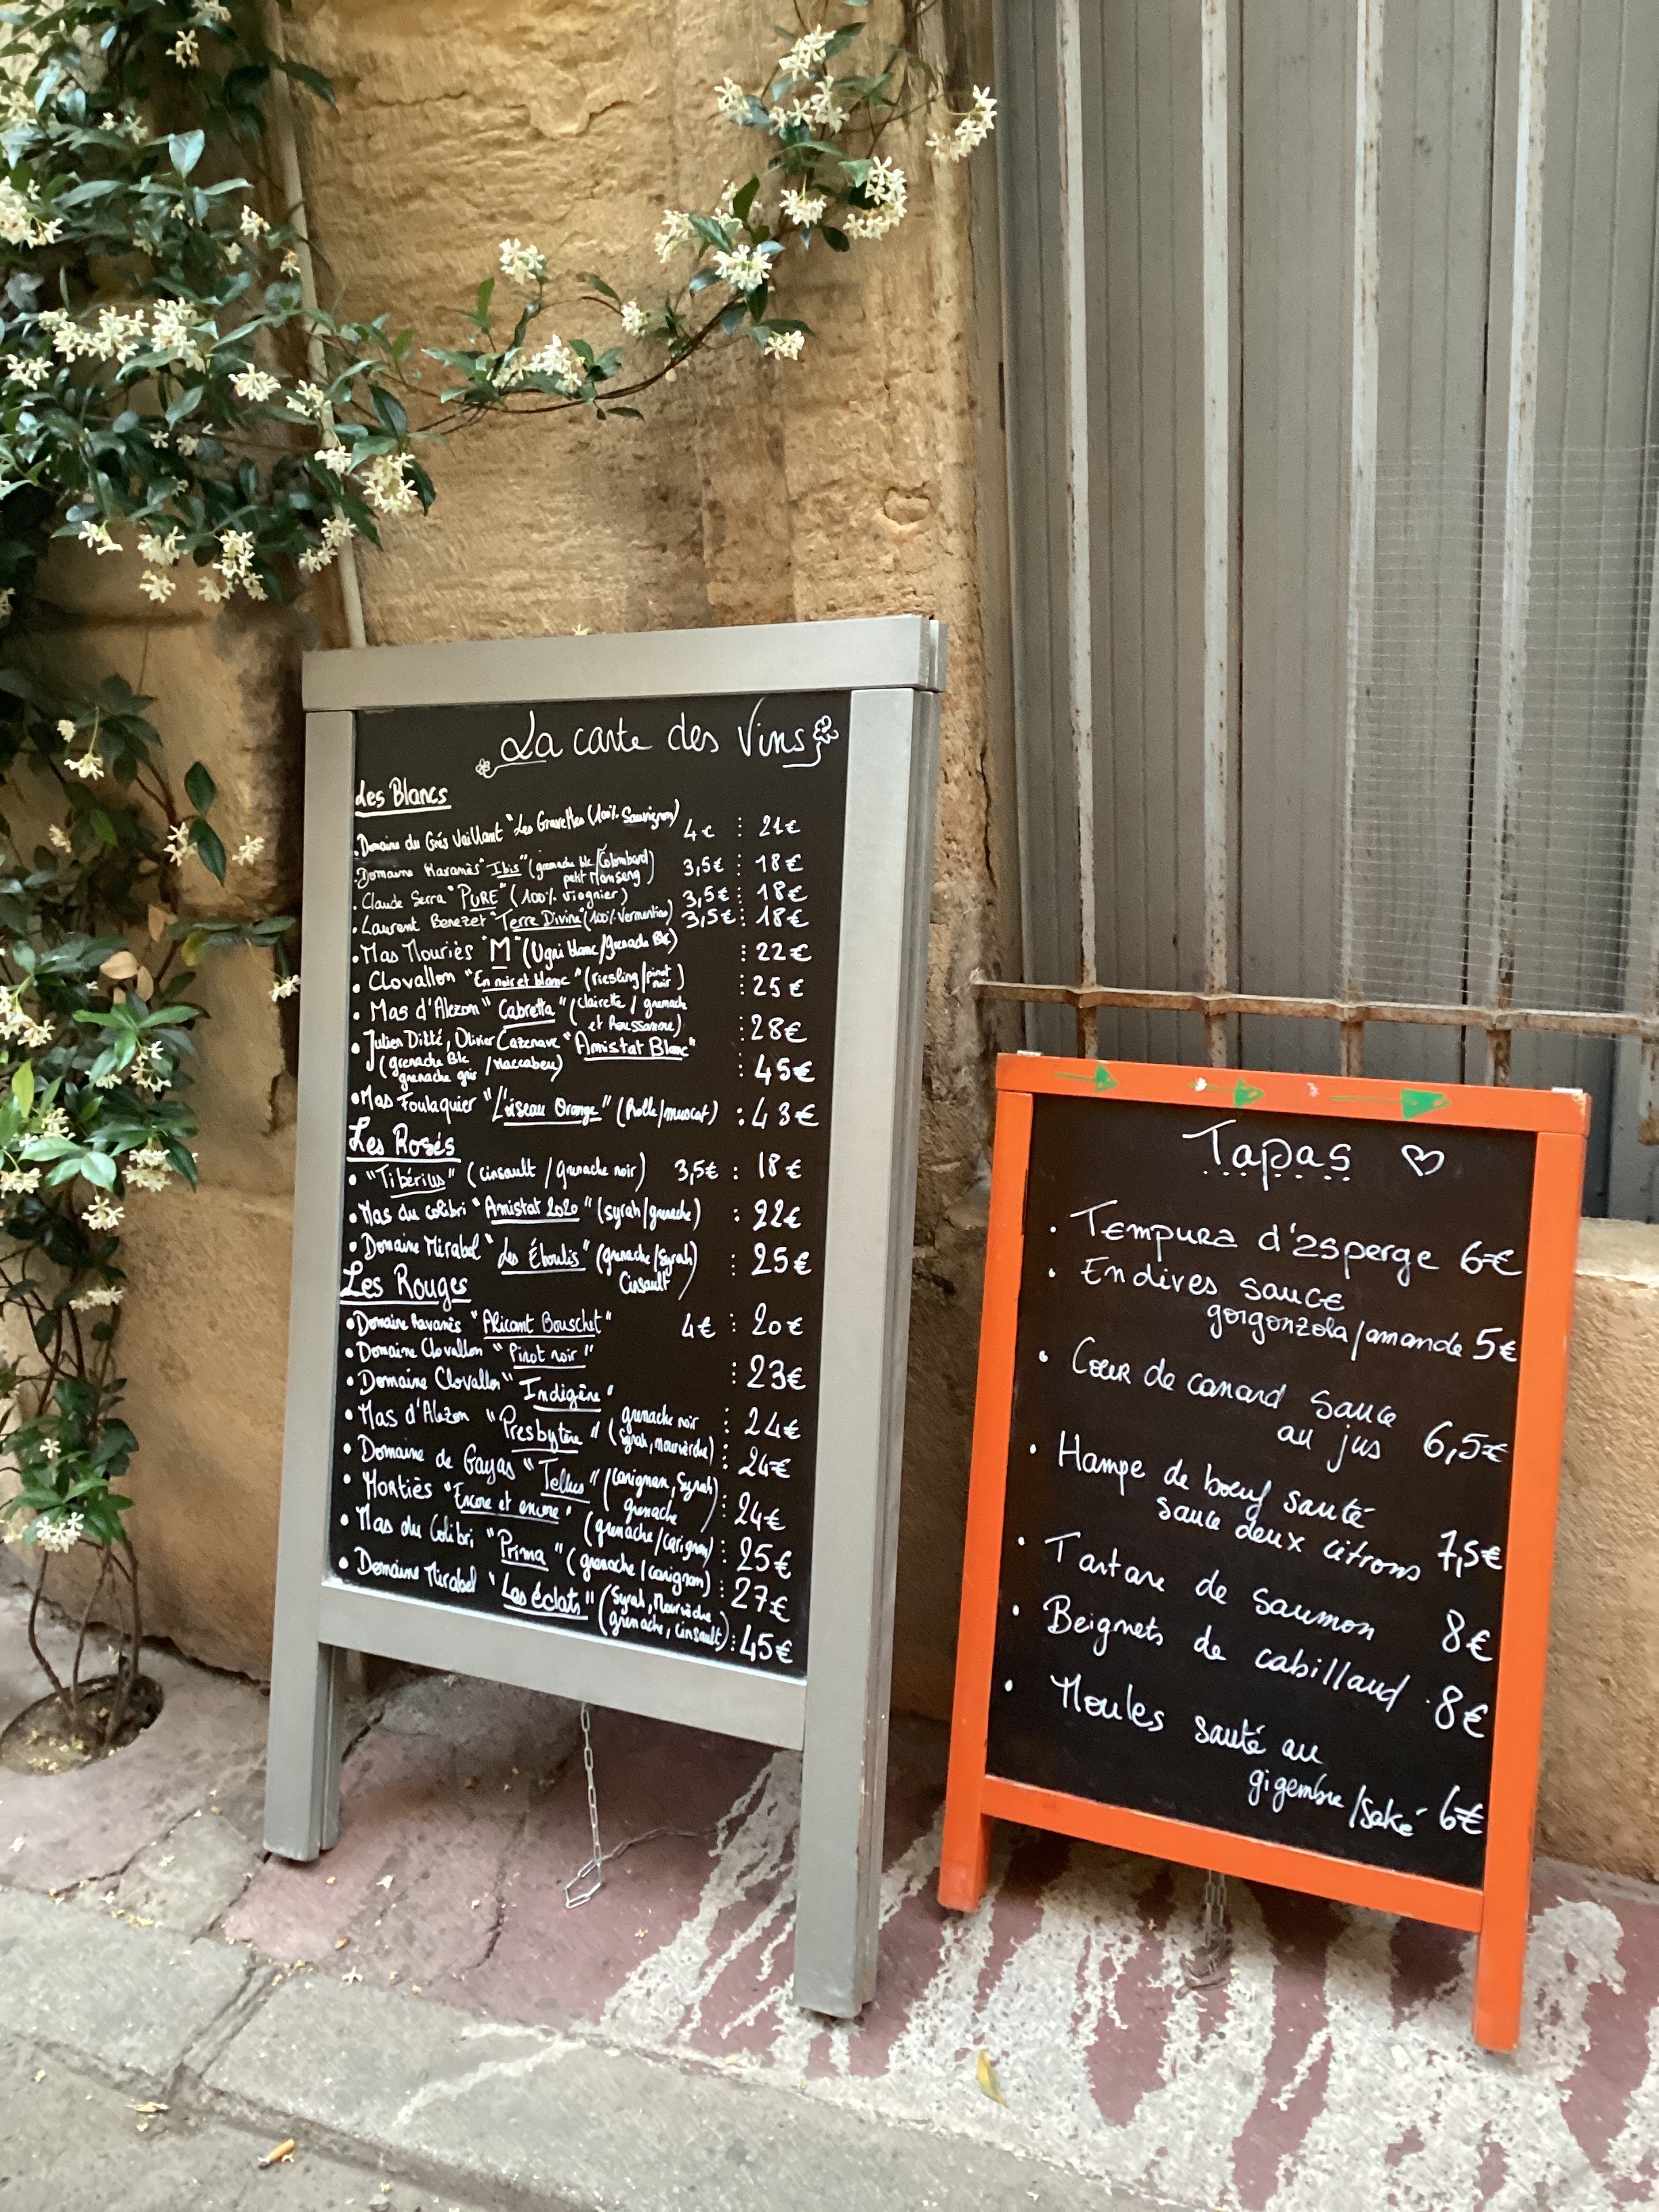 La carte des Vins
Les Blancs
. Domaine du Grès Vaillant "Les Gravettes (100% Sauvignon) 4€ : 21€
. Domaine Ravanès "Ibis" (grenache blc/Colombard) 3,5€ : 18€
petit Manseng
. Claude Serra "PURE" (100% Viognier) 3,5€ : 18€
. Laurent Benezet "Terre Divine" (100% Vermentino) 3,5€ : 18€
. Mas Mouriès "M" (Ugni blanc/grenache Blc) : 22€
. Clovallon "En noir et blanc" (riesling/pinot noir) : 25€
. Mas d'Alezon "Cabretta" (clairette / grenache
et Roussanne) : 28€
. Julien Ditté, Olivier Cazenave "Amistat Blanc"
(grenache Blc / Maccabeu) : 45€
grenache gris
• Mas Foulaquier "L'oiseau Orange" (Rolle/muscat) : 43€
Les Rosés
• "Tibérius" (cinsault / grenache noir) 3,5€ : 18€
• Mas du colibri "Amistat 2020" (syrah/grenache) : 22€
• Domaine Mirabel "Les Éboulis" (grenache/Syrah) : 25€
Cinsault
Les Rouges
• Domaine Ravanès "Alicant Bouschet" 4€ : 20€
• Domaine Clovallon "Pinot noir" : 23€
• Domaine Clovallon "Indigène" : 24€
• Mas d'Alezon "Presbytère" (grenache noir
syrah, mourvèdre) : 24€
• Domaine de Gayas "Tellus" (carignan, Syrah)
grenache : 24€
• Mortiès "Encore et encore" (grenache/carignan) : 25€
• Mas du Colibri "Prima" (grenache/carignan) : 27€
• Domaine Mirabel "Les éclats" (Syrah, Mourvèdre
grenache, cinsault) : 45€
Tapas ♡
• Tempura d'asperge 6€
• Endives sauce
gorgonzola/amande 5€
• Cœur de canard sauce
au jus 6,5€
• Hampe de bœuf sauté
sauce deux citrons 7,5€
• Tartare de saumon 8€
• Beignets de cabillaud 8€
• Moules sauté au
gigembre/saké 6€